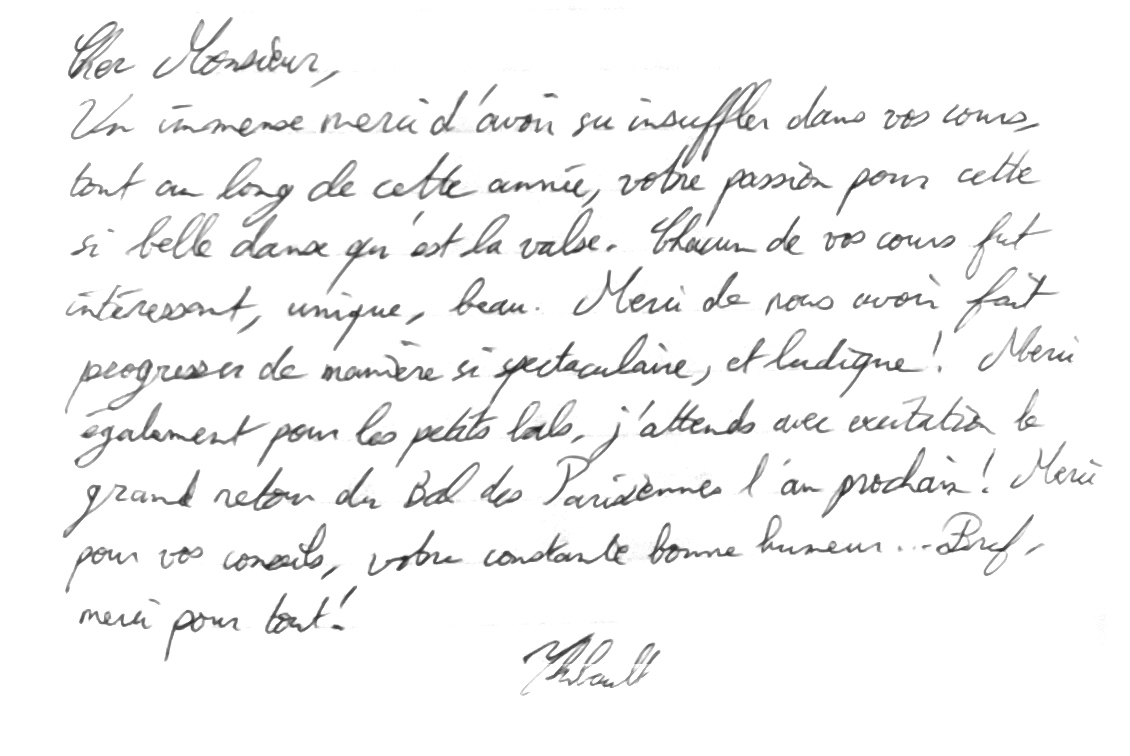 Cher Monsieur,
Un immense merci d'avoir su insuffler dans vos cours,
tout au long de cette année, votre passion pour cette
si belle danse qu'est la valse. Chacun de vos cours fut
intéressant, unique, beau. Merci de nous avoir fait
progresser de manière si spectaculaire, et ludique! Merci
également pour les petits bals, j'attends avec excitation le
grand retour du Bal des Parisiennes l'an prochain! Merci
pour vos conseils, votre constante bonne humeur... Bref,
merci pour tout!
Thibault